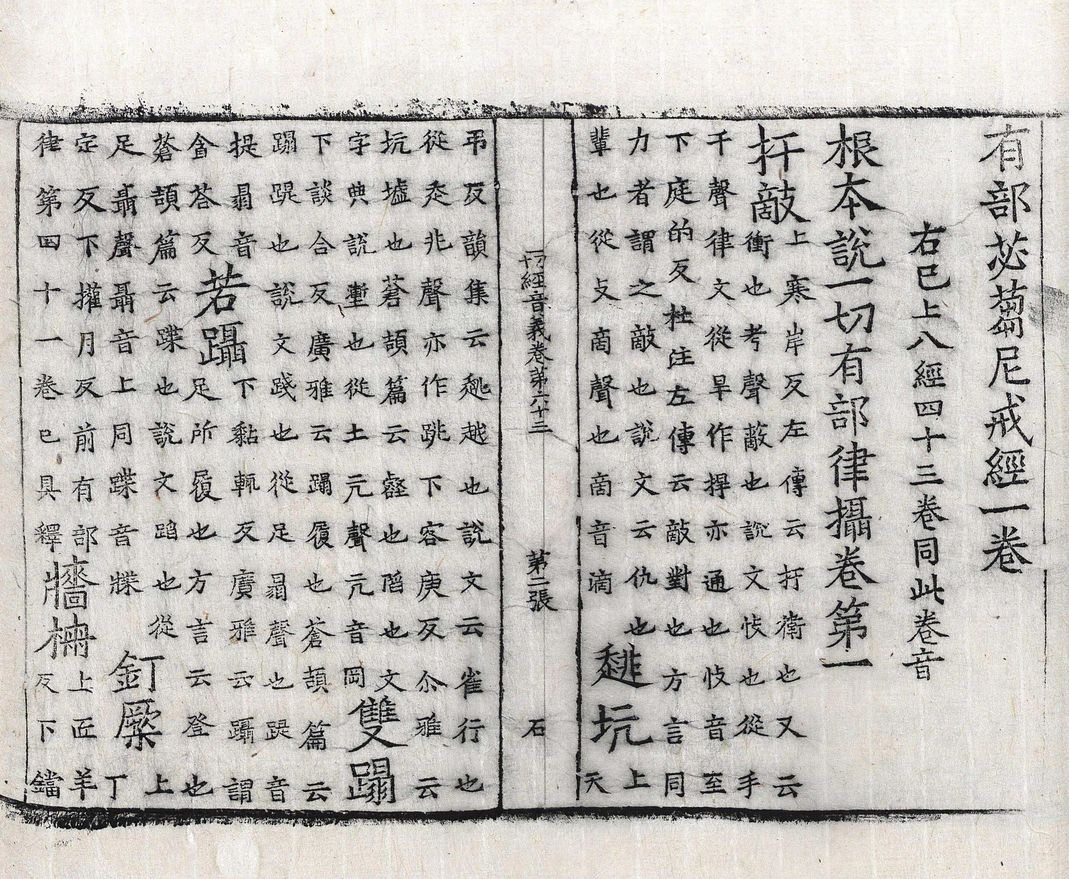 有部苾蒭尼戒經一卷
右已上八經四十三卷同此卷音
根本說一切有部律攝卷第一
扞敵
上寒岸反左傳云扞衛也又云
衝也考聲蔽也說文忮也從手
干聲律文從旱作捍亦通也忮音至
下庭的反杜注左傳云敵對也方言同
力者謂之敵也說文云仇也
輩也從攴啇聲也啇音滴
趒坑
上
天
一切經音義卷第六十三 第二張 石
弔反韻集云趒越也說文云雀行也
從走兆聲亦作跳下客庚反尒雅云
坑墟也蒼頡篇云壑也陷也文
字典說塹也從土亢聲亢音岡
雙蹋
下談合反廣雅云蹋履也蒼頡篇云
蹋踶也說文踐也從足𦐇聲也踶音
提𦐇音
貪荅反
若躡
下黏輒反廣雅云躡謂
足所履也方言云登也
蒼頡篇云蹀也說文蹈也從
足聶聲聶音上同蹀音牒
釘橛
上
丁
定反下權月反前有部
律第四十一卷已具釋
牆栴
上匠羊
反下鐺